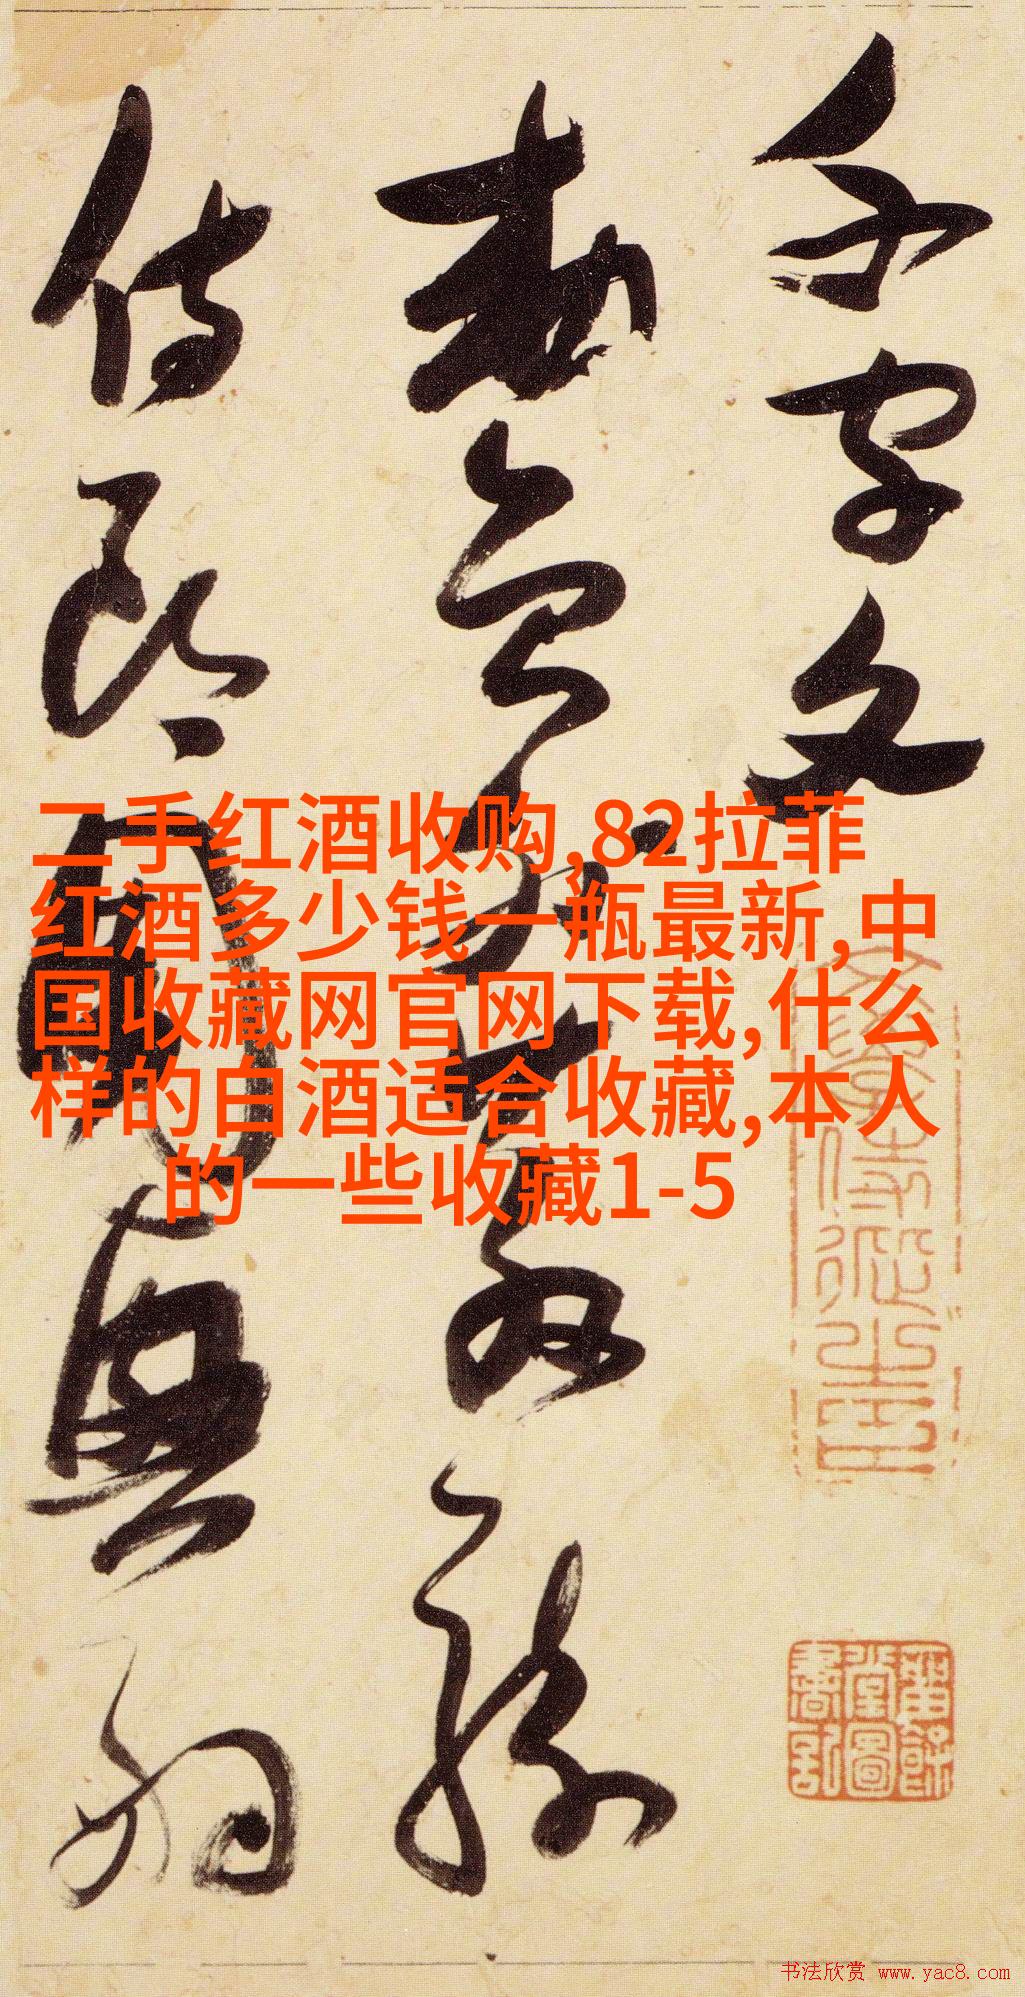 千字文
勅員外散騎
侍郎周興嗣
二手红酒收购,82拉菲
红酒多少钱一瓶最新,中
国收藏网官网下载,什么
样的白酒适合收藏,本人
的一些收藏1-5
书法欣赏 www.yac8.com